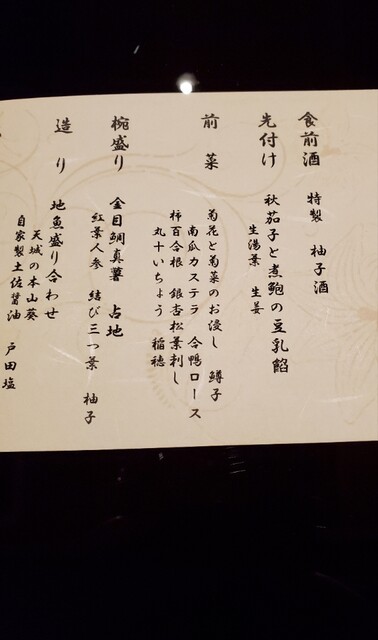 食前酒 特製 柚子酒
先付け 秋茄子と煮鮑の豆乳餡
生湯葉 生姜
前菜 菊花と菊菜のお浸し 鱒子
南瓜カステラ 合鴨ロース
柿百合根 銀杏松葉刺し
丸十いちょう 稲穂
椀盛り 金目鯛真薯 占地
紅葉人参 結び三つ葉 柚子
造り 地魚盛り合わせ
天城の本山葵
自家製土佐醤油 戸田塩